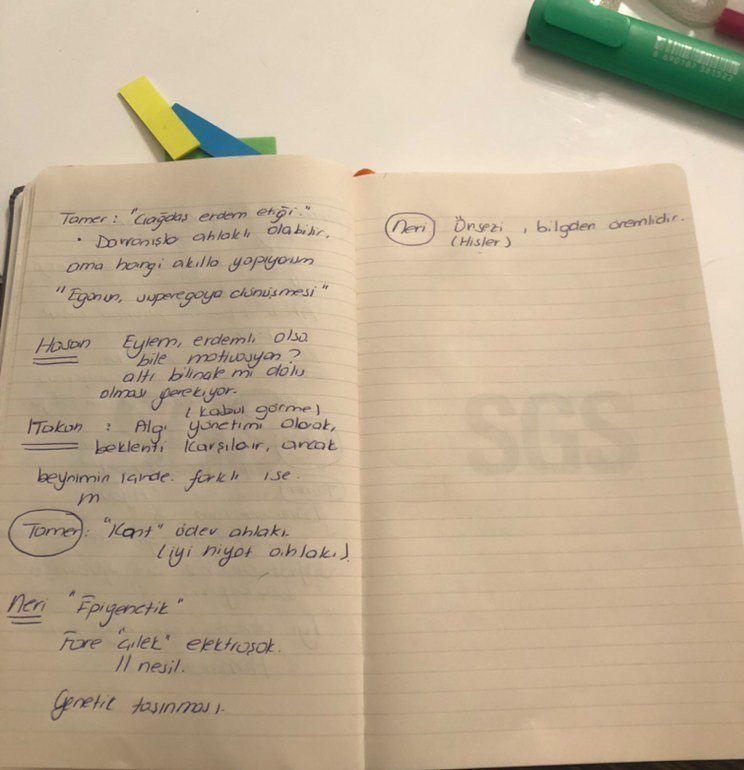 Tamer: "Çağdaş erdem etiği."
• Davranışla ahlaklı olabilir,
ama hangi akılla yapıyorum
"Egonun, superegoya dönüşmesi"
Hasan Eylem, erdemli olsa
bile motivasyon?
altı bilinçle mi dolu
olması gerekiyor.
(kabul görme)
Hakan : Algı yönetimi olarak,
beklenti karşılar, ancak
beynimin içinde. farklı ise.
m
Tamer: "Kant" ödev ahlakı.
(iyi niyet ahlakı).
Neri "Epigenetik"
Fare "çilek" elektroşok.
11 nesil.
Genetik taşınması.
Neri Önsezi, bilgiden önemlidir.
(Hisler)
SGS
8 690167 361522